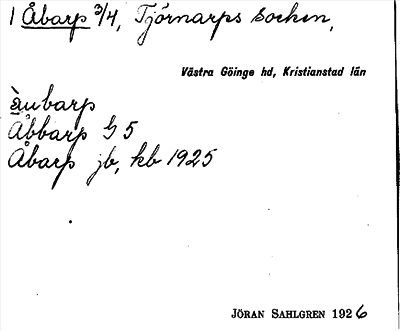 1 Åbarp 3/4, Tjörnarps socken,
Västra Göinge hd, Kristianstad län
Åbbarp G 5
Åbarp jb, kb 1925
JÖRAN SAHLGREN 1926